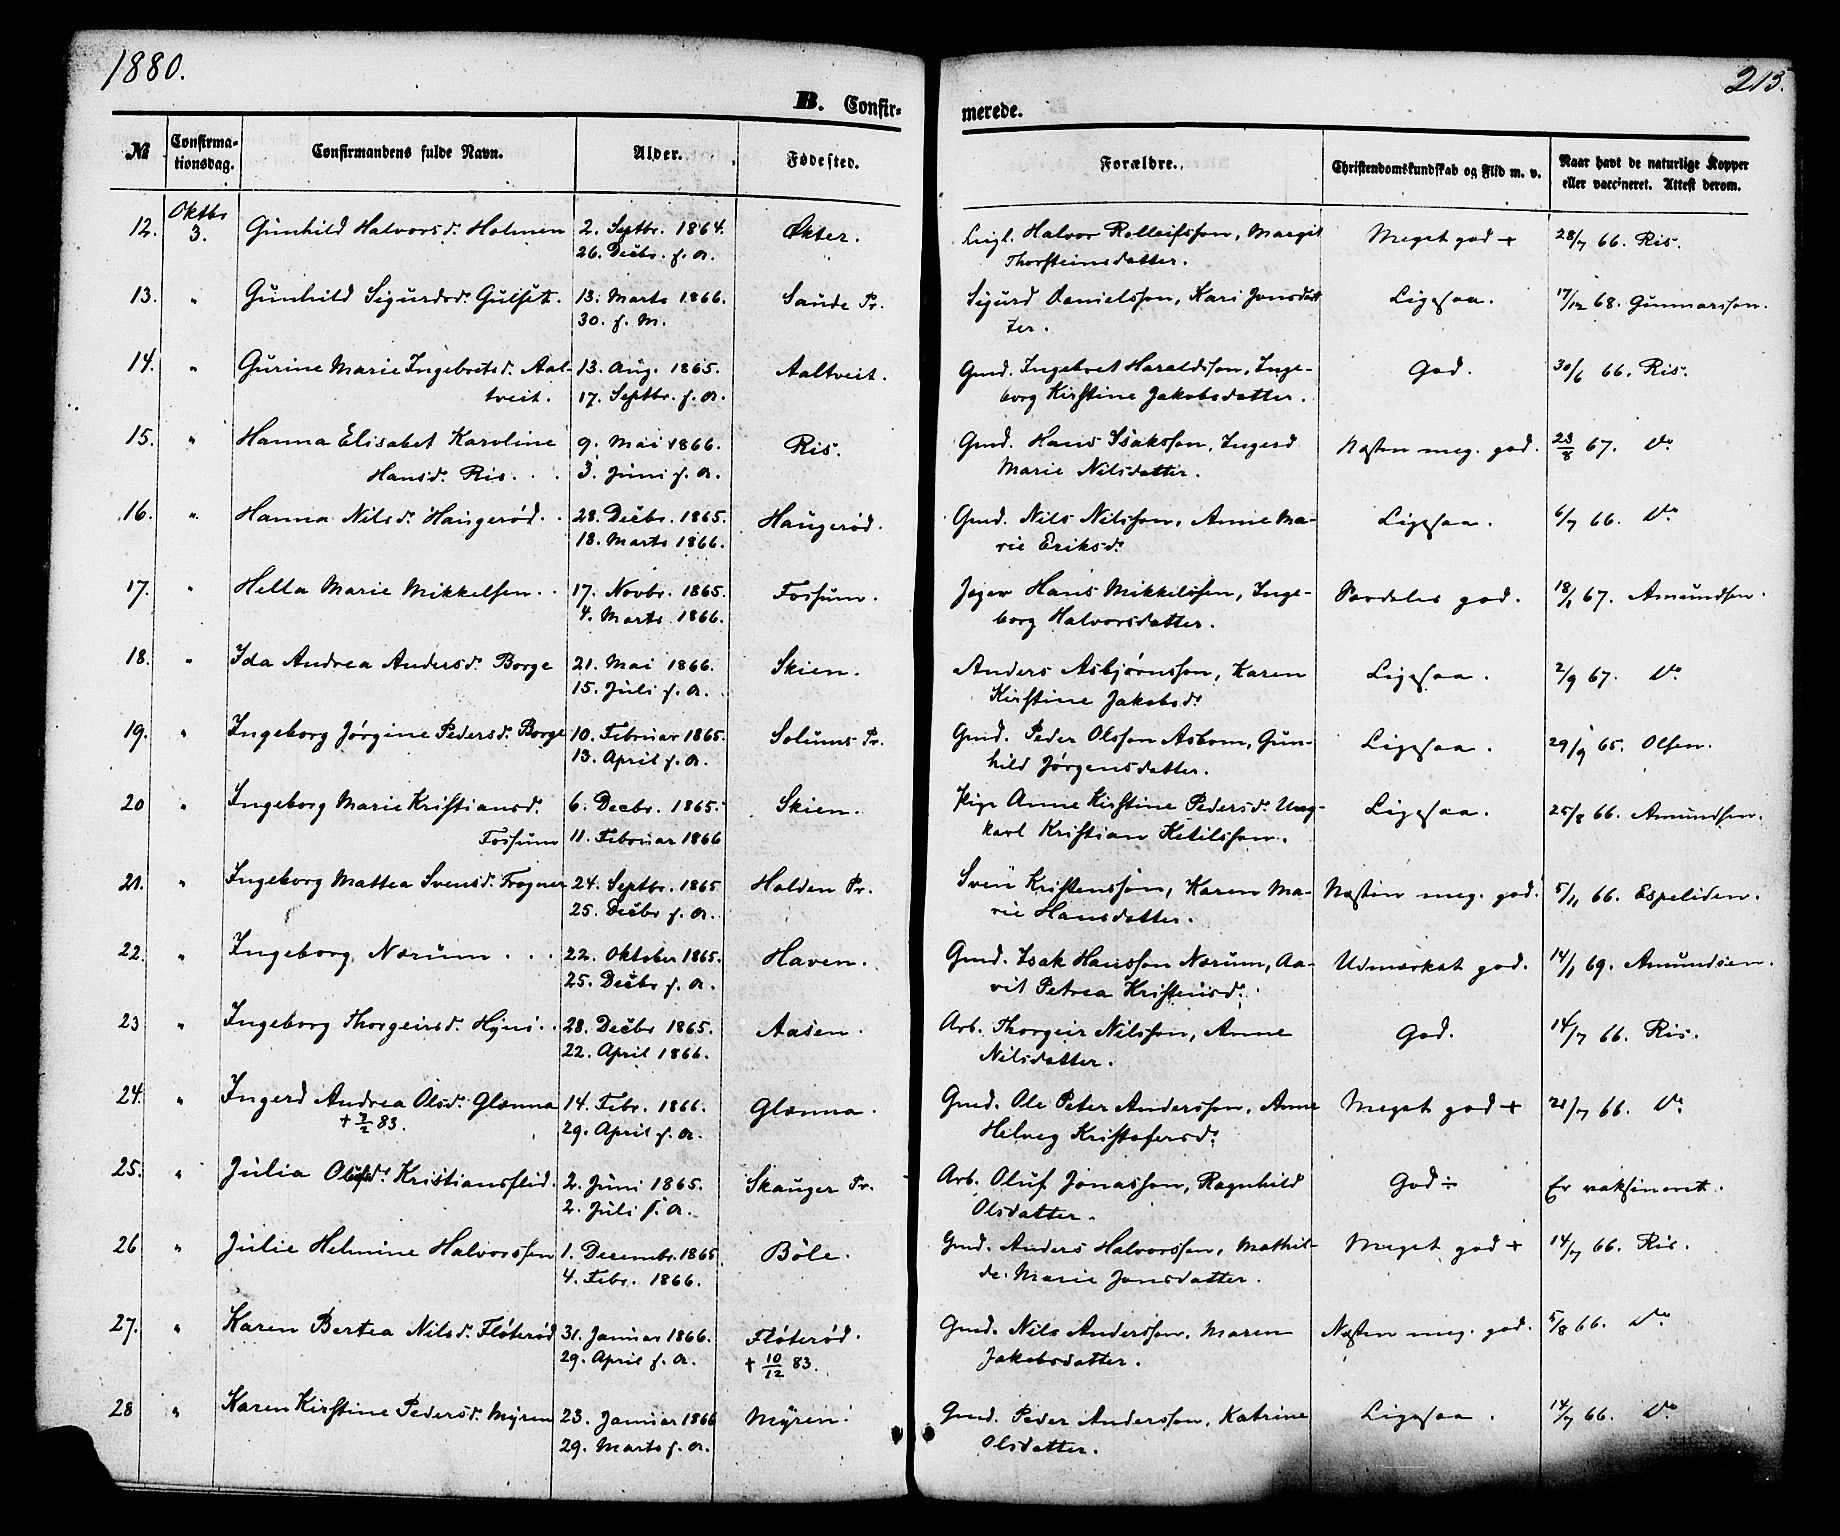 1880.
213.
B. Confir-
merede.
№ Confirma-tionsdag. Confirmandens fulde Navn. Alder. Fødested. Forældre. Christendomskundskab og Flid m. v. Naar havt de naturlige Kopper eller vaccineret. Attest derom.
12. Oktbr 3. Gunhild Halvorsd. Holmen 2. Septbr. 1864. Økter. Leigl. Halvor Rolleifsson, Margit Meget god + 28/7 66. Ris.
26. Decbr. s. A. Thorsteinsdatter.
13. " Gunhild Sigurdsd. Gulset. 13. Marts 1866. Saude Pr. Sigurd Danielsson, Kari Jonsdat Ligesaa. 17/12 68. Gunnarsson.
30. s. M. ter.
14. " Gurine Marie Ingebretsd. Aal- 13. Aug. 1865. Aaltveit. Gmd. Ingebret Haraldsson, Inge- God. 30/6 66. Ris.
tveit. 17. Septbr. s. A. borg Kirstine Jakobsdatter.
15. " Hanna Elisabet Karoline 9. Mai 1866. Ris. Gmd. Hans Isaksson, Ingerd Næsten meg. god. 23/8 67. Do
Hansd. Ris. 3. Juni s. A. Marie Nilsdatter.
16. " Hanna Nilsd. Haugerød. 28. Decbr. 1865. Haugerød. Gmd. Nils Nilsson, Anne Ma- Ligesaa. 6/7 66. Do
18. Marts 1866. rie Eriksd.
17. " Hella Marie Mikkelsen 17. Novbr. 1865. Fossum. Jæger Hans Mikkelssen, Inge- Særdeles god. 18/1 67. Amundsen.
4. Marts 1866. borg Halvorsdatter.
18. " Ida Andrea Andersd. Borge 21. Mai 1866. Skien. Anders Asbjørnsson, Karen Ligesaa. 2/9 67. Do
15. Juli s. A. Kirstine Jakobsd.
19. " Ingeborg Jørgine Pedersd. Borge 10. Februar 1865. Solums Pr. Gmd. Peder Olsson Asbom, Gun- Ligesaa. 29/9 65. Olsen.
13. April s. A. hild Jørgensdatter.
20 " Ingeborg Marie Kristiansd. 6. Decbr. 1865. Skien. Pige Anne Kirstine Pedersd. Ung- Ligesaa. 25/8 66. Amundsen.
Fossum 11. Februar 1866 karl Kristian Ketilsson.
21. " Ingeborg Mattea Svensd. Frogner 24. Septbr. 1865 Holden Pr. Sven Kristensson, Karen Ma- Næsten meg. god. 5/11 66. Espeliden.
25. Decbr s. A. rie Hansdatter.
22. " Ingeborg Nærum 22. Oktober 1865. Haven. Gmd. Isak Hansson Nærum, Aa- Udmærket god. 14/1 69. Amundsen.
25. Decbr s. A. vil Petrea Kristensd.
23 " Ingeborg Thorgeirsd. Hyni 28. Decbr 1865. Aasen. Arb. Thorgeir Nilsson, Anne God. 14/7 66. Ris.
22. April 1866. Nilsdatter.
24. " Ingerd Andrea Olsd. Glænna 14. Febr. 1866. Glænna. Gmd. Ole Peter Andersson, Anne Meget god + 21/7 66. Do
+ 3/2 83. 29. April s. A. Helvig Kristofersd.
25. " Julia Olufsd. Kristiansflid. 2. Juni 1865. Skauger Pr. Arb. Oluf Jonasson, Ragnhild God ÷ Er vaksineret.
2. Juli s. A. Olsdatter.
26 " Julie Helmine Halvorssen 1. Decembr. 1865 Bøle. Gmd. Anders Halvorssen, Mathil- Meget god + 14/7 66. Ris.
4. Febr. 1866. de Marie Jonsdatter.
27. " Karen Bertea Nilsd. Fløterød 31. Januar 1866. Fløterød. Gmd. Nils Andersson, Maren Næsten meg. god. 5/8 66. Do
29. April s. A. + 10/12 83. Jakobsdatter.
28 " Karen Kirstine Pedersd. Myren 23. Januar 1866 Myren. Gmd. Peder Andersson, Katrine Ligesaa. 14/7 66. Do
29. Marts s. A. Olsdatter.